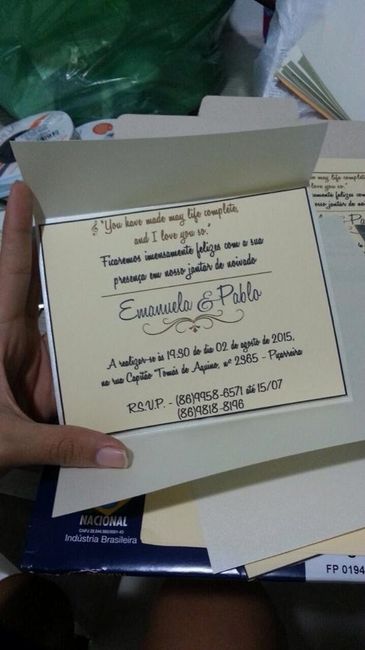 "You have made may life complete,
and I love you so."
Ficaremos imensamente felizes com a sua
presença em nosso jantar de noivado
Emanuela & Pablo
A realizar-se às 19:30 do dia 02 de agosto de 2015,
na rua Capitão Tomás de Aquino, nº 2965 - Piçarreira
R.S.V.P. - (86)9958-6571 até 15/07
(86)9818-8196
NACIONAL
Indústria Brasileira
FP 0194